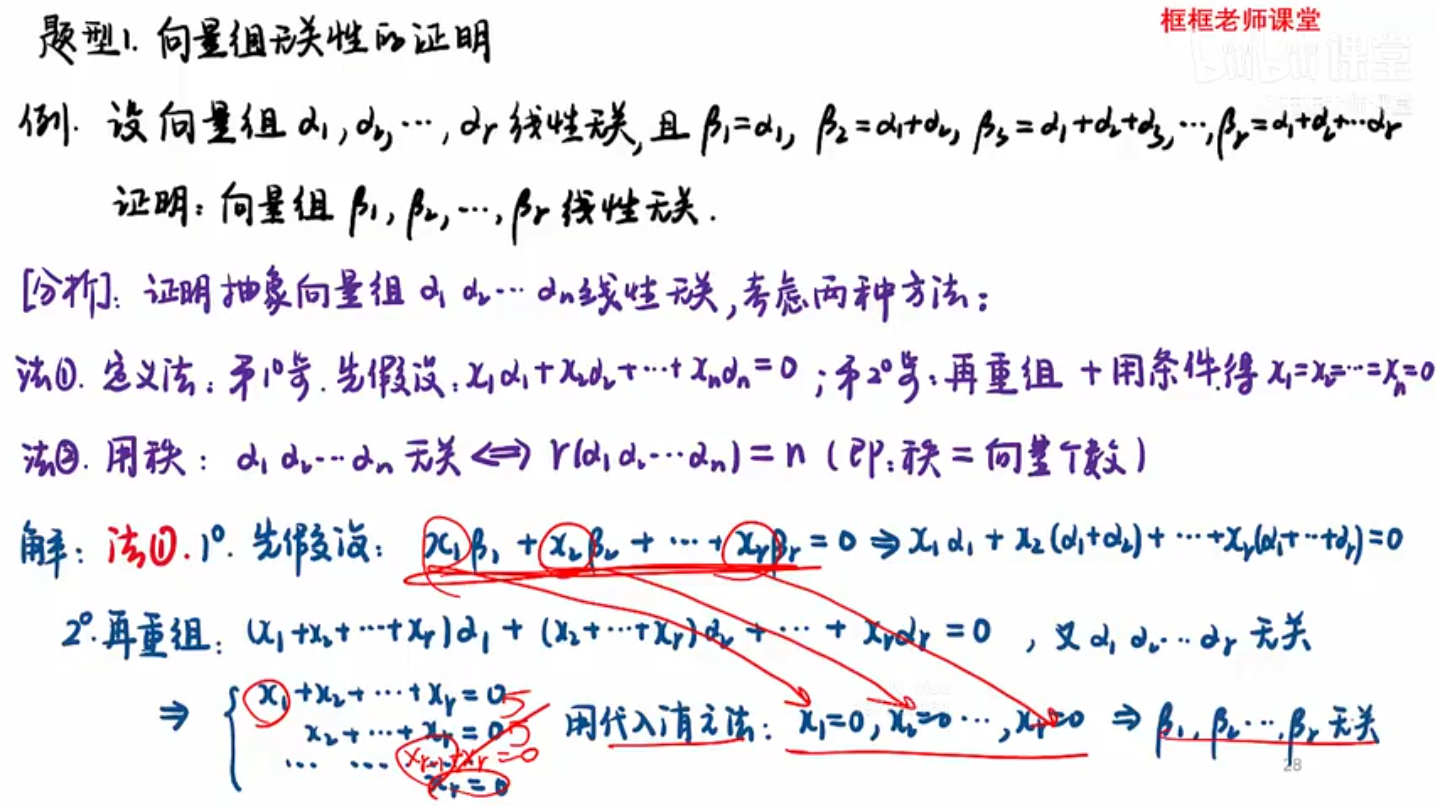 框框老师课堂
bilibili课堂
题型1. 向量组无关性的证明
例. 设向量组 α₁, α₂, ⋯, αᵣ 线性无关, 且 β₁=α₁, β₂=α₁+α₂, β₃=α₁+α₂+α₃, ⋯, βᵣ=α₁+α₂+⋯αᵣ
证明: 向量组 β₁, β₂, ⋯, βᵣ 线性无关.
[分析]: 证明抽象向量组 α₁ α₂⋯ αₙ线性无关, 考虑两种方法:
法①. 定义法: 第1°步. 先假设: x₁α₁+x₂α₂+⋯+xₙαₙ=0 ; 第2°步: 再重组 + 用条件. 得 x₁=x₂=⋯=xₙ=0
法②. 用秩: α₁ α₂⋯αₙ 无关 ⟺ r(α₁ α₂⋯αₙ)=n (即: 秩=向量个数)
解: 法①. 1°. 先假设: x₁β₁ + x₂β₂ + ⋯ + xᵣβᵣ = 0 ⇒ x₁α₁ + x₂(α₁+α₂) + ⋯ +xᵣ(α₁+⋯+αᵣ)=0
2°. 再重组: (x₁+x₂+⋯+xᵣ)α₁ + (x₂+⋯+xᵣ)α₂ + ⋯ + xᵣαᵣ = 0 , 又 α₁ α₂⋯ αᵣ 无关
⇒ { x₁+x₂+⋯+xᵣ=0
x₂+⋯+xᵣ=0
⋯ ⋯ xᵣ₋₁+xᵣ=0
xᵣ=0
用代入消元法: x₁=0, x₂=0 ⋯, xᵣ=0 ⇒ β₁, β₂⋯, βᵣ 无关
28